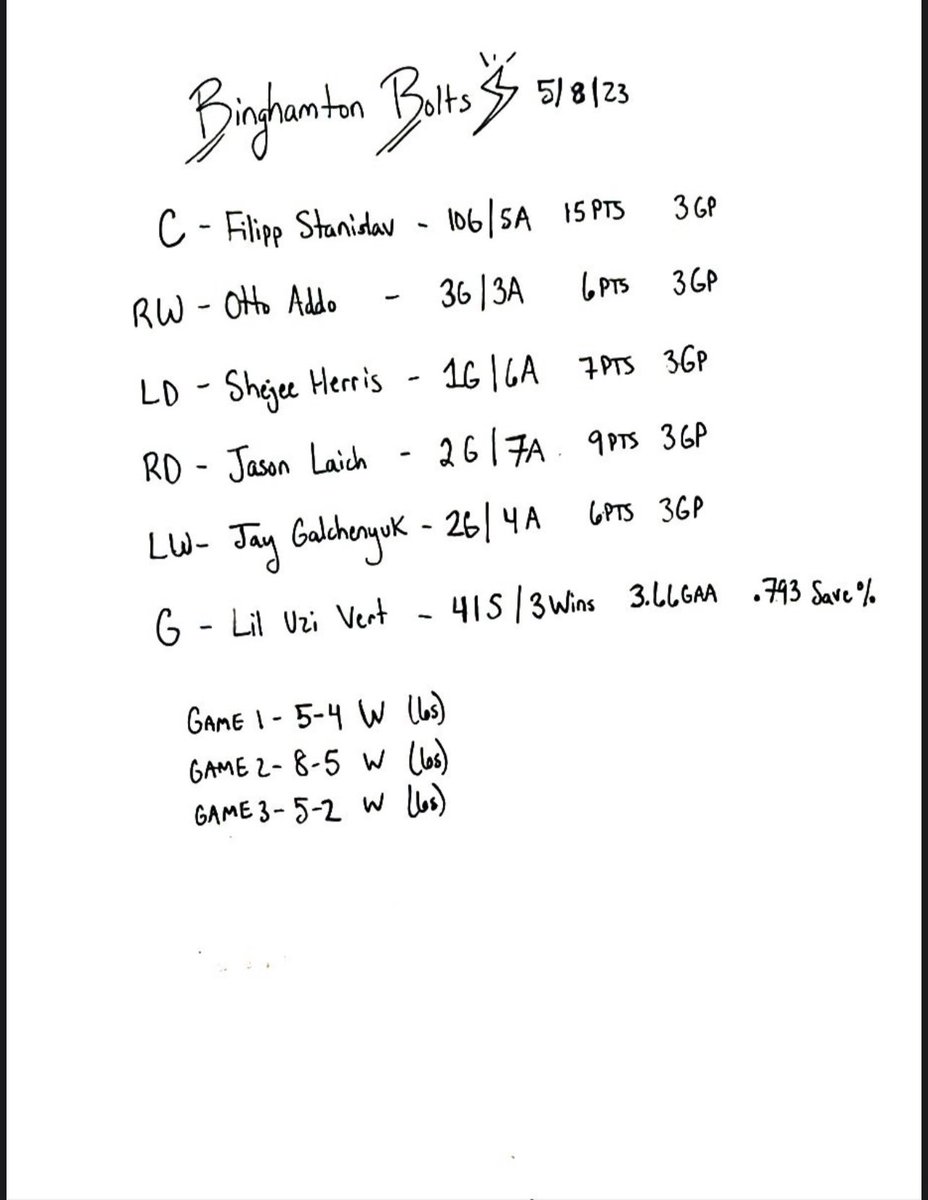 Binghamton Bolts 5/8/23
C - Filipp Stanislav - 10G/5A 15 PTS 3 GP
RW - Otto Addo - 3G/3A 6 PTS 3 GP
LD - Shejee Herris - 1G/6A 7 PTS 3GP
RD - Jason Laich - 2G/7A. 9 PTS 3GP
LW- Jay Galchenyuk - 2G/4A 6PTS 3GP
G - Lil Uzi Vert - 41S/3Wins 3.66GAA .793 Save%
GAME 1 - 5-4 W (6s)
GAME 2- 8-5 W (6s)
GAME 3- 5-2 W (6s)